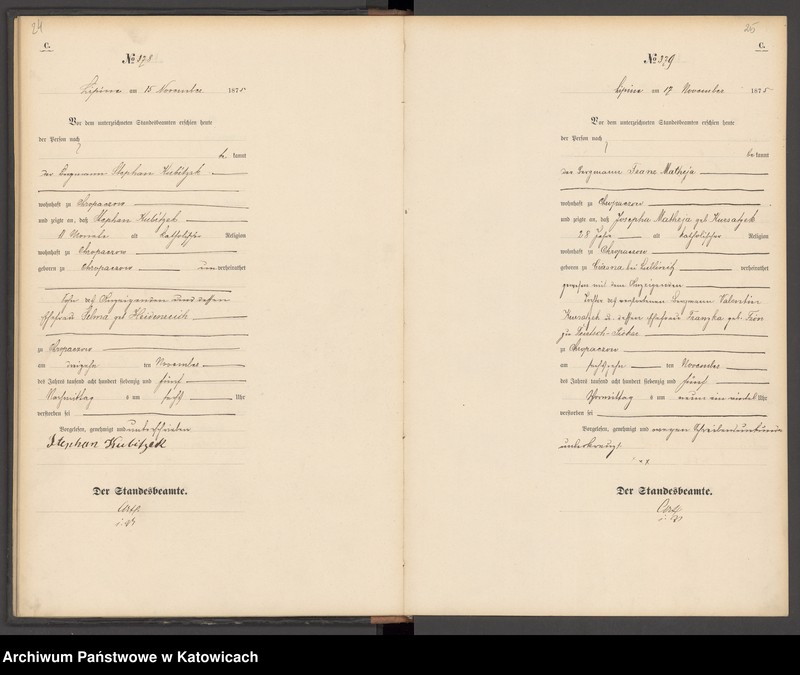 24
C.
№ 378
Lipine am 15 November 1875
Vor dem unterzeichneten Standesbeamten erschien heute
der Person nach
be kannt
der Bergmann Stephan Kubitzek
wohnhaft zu Chropaczow
und zeigte an, daß Stephan Kubitzek
11 Monate alt katholischer Religion
wohnhaft zu Chropaczow
geboren zu Chropaczow unverheirathet
Sohn des Anzeigenden und dessen
Ehefrau Selma geb Heidenreich
zu Chropaczow
am ten November
des Jahres tausend acht hundert siebenzig und fünf
Nachmittag s um sechs Uhr
verstorben sei
Vorgelesen, genehmigt und unterschrieben
Stephan Kubitzek
Der Standesbeamte.
25
C.
№ 379
Lipine am 17 November 1875
Vor dem unterzeichneten Standesbeamten erschien heute
der Person nach
be kannt
der Bergmann Franz Matheja
wohnhaft zu Chropaczow
und zeigte an, daß Josepha Matheja geb Kursatzek
28 Jahr alt katholischer Religion
wohnhaft zu Chropaczow
geboren zu bei verheirathet
gewesen mit dem Anzeigenden
Tochter des verstorbenen Bergmann Valentin
Kursatzek u. dessen Ehefrau Franzka geb.
zu Deutsch-Piekar
zu Chropaczow
am sechszehn ten November
des Jahres tausend acht hundert siebenzig und fünf
Vormittag s um neun ein viertel Uhr
verstorben sei
Vorgelesen, genehmigt und wegen Schreibensunkunde
unterkreuzt
x x x
Der Standesbeamte.
Archiwum Państwowe w Katowicach